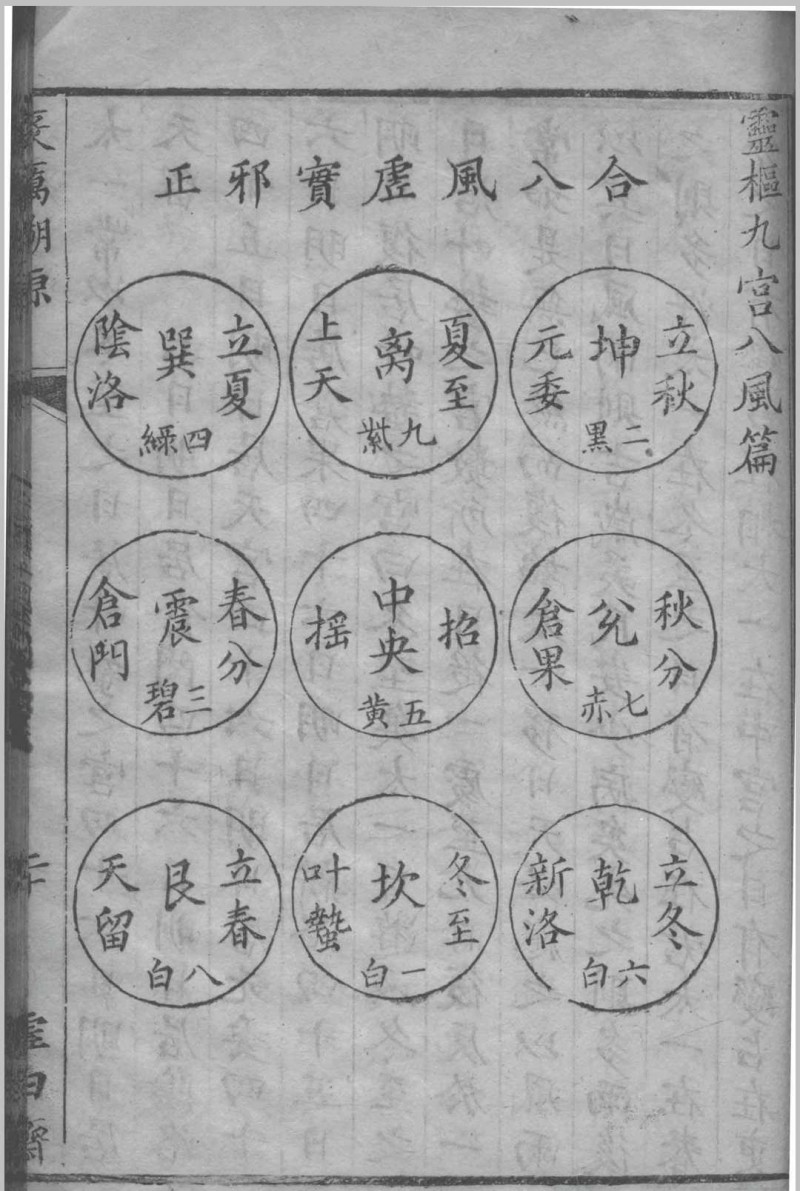 靈樞九宮八風篇
合八風虛實邪正
立秋
坤
二黑
元委
夏至
离
九紫
上天
立夏
巽
四綠
陰洛
秋分
兌
七赤
倉果
招
中央
五黃
揺
春分
震
三碧
倉門
立冬
乾
六白
新洛
冬至
坎
一白
叶蟄
立春
艮
八白
天留